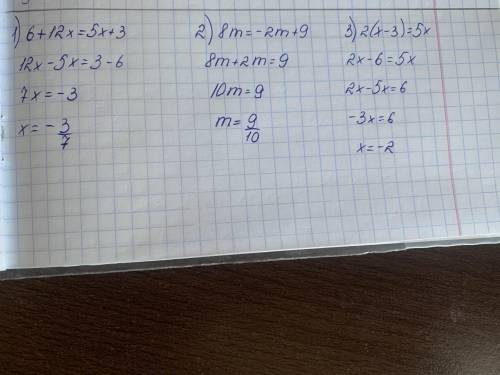 1) 6+12x=5x+3
12x-5x=3-6
7x=-3
x=-3/7
2) 8m=-2m+9
8m+2m=9
10m=9
m=9/10
3) 2(x-3)=5x
2x-6=5x
2x-5x=6
-3x=6
x=-2